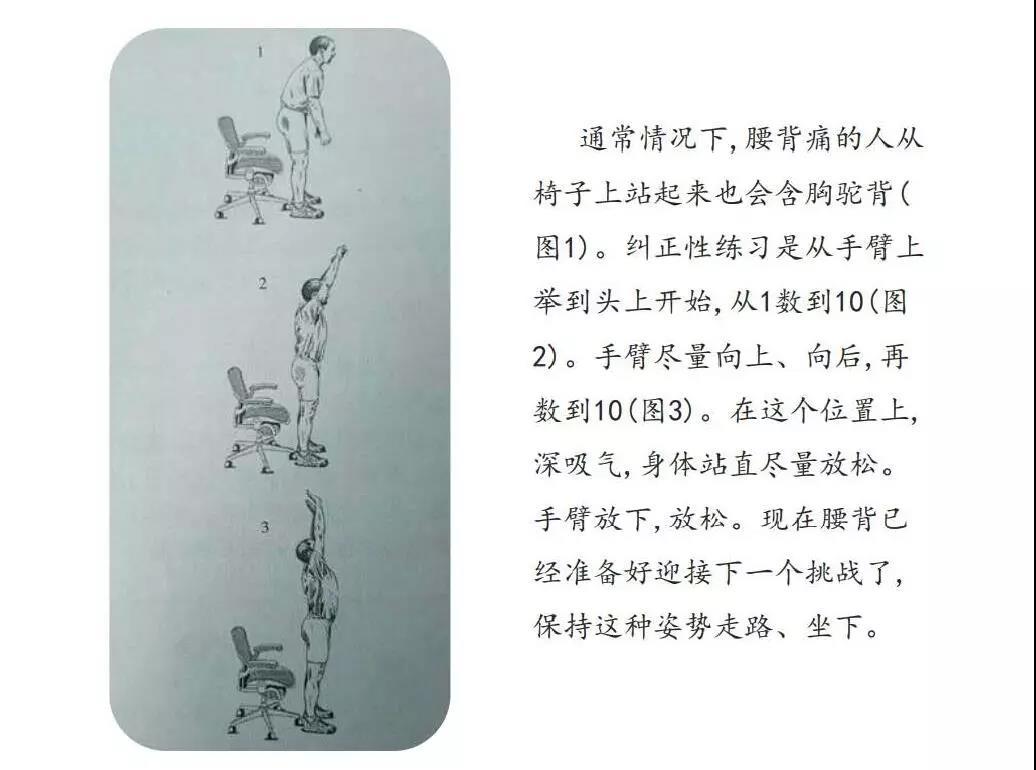 1
2
3
通常情况下,腰背痛的人从
椅子上站起来也会含胸驼背(
图1)。纠正性练习是从手臂上
举到头上开始,从1数到10(图
2)。手臂尽量向上、向后,再
数到10(图3)。在这个位置上,
深吸气,身体站直尽量放松。
手臂放下,放松。现在腰背已
经准备好迎接下一个挑战了,
保持这种姿势走路、坐下。